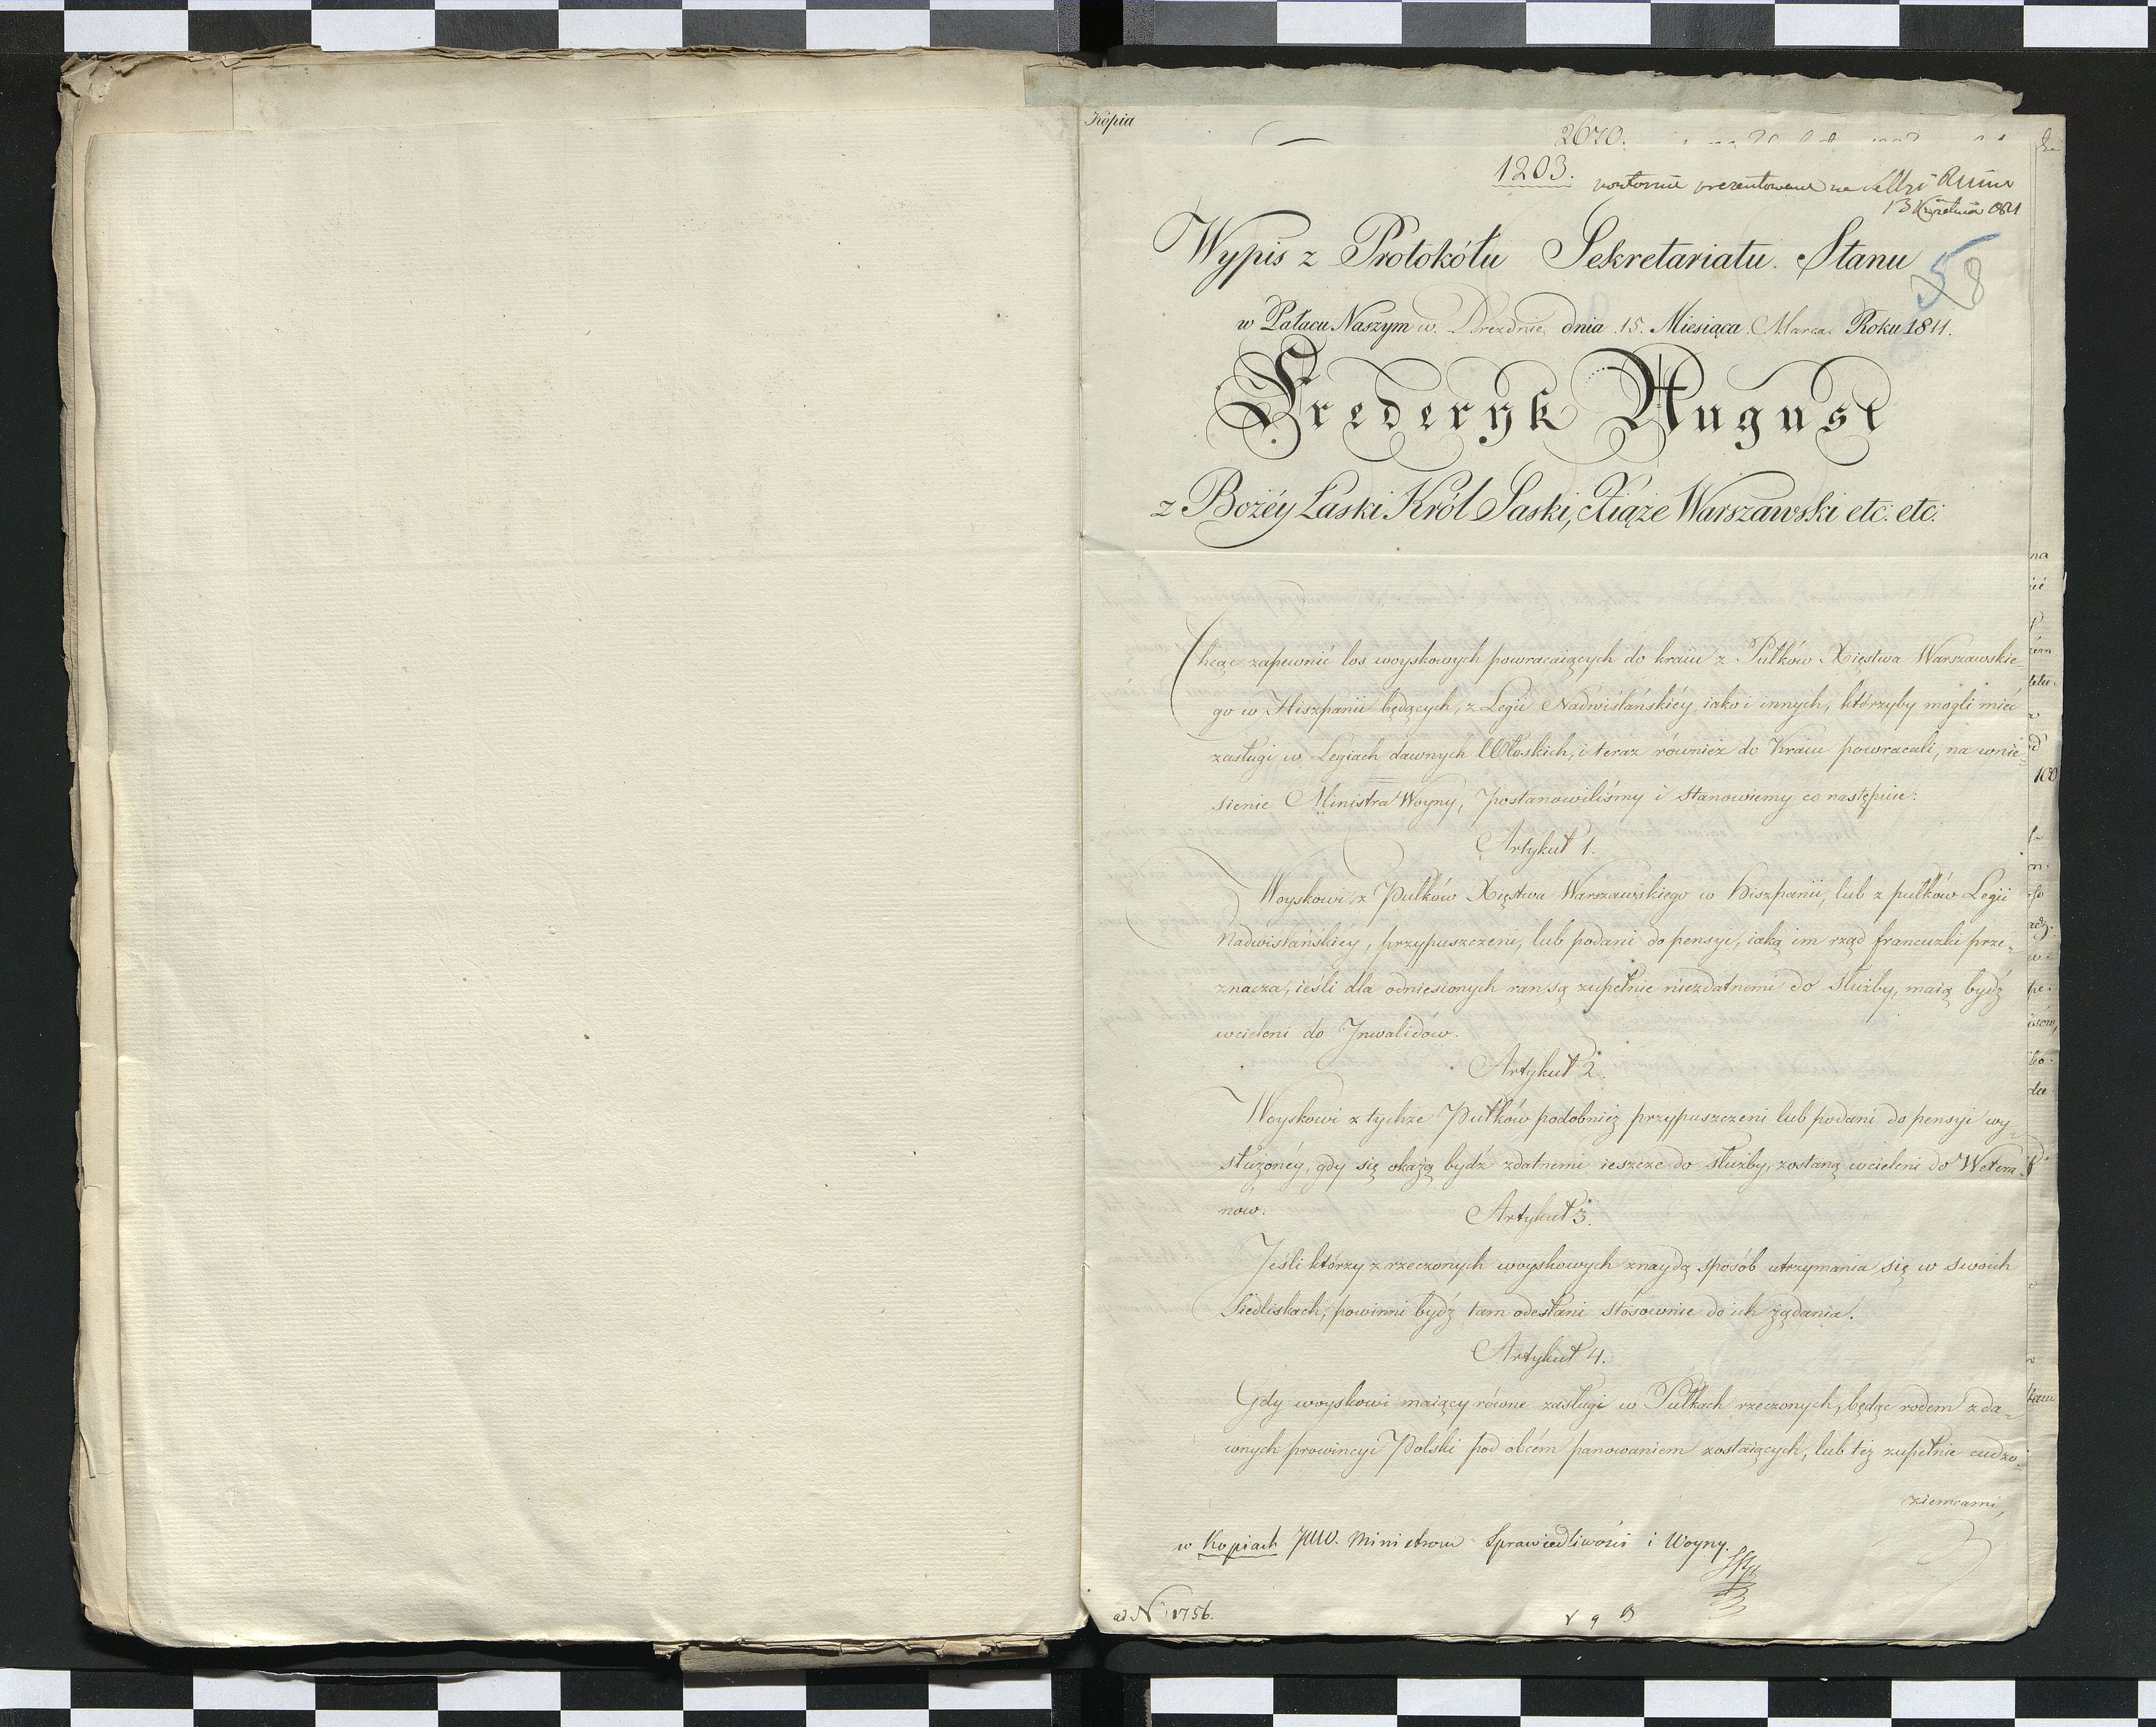 Kopia
2670.
1203.
powtornie prezentowane na
13 Kwietnia 1811
58
Wypis z Protokółu Sekretariatu Stanu
w Pałacu Naszym w Dreźnie dnia 15. Miesiąca Marca Roku 1811.
Frederyk August
z Bożéy Łaski Król Saski, Xiąże Warszawski etc. etc.
Chcąc zapewnić los woyskowych powracaiących do kraiu z Pułków Xięstwa Warszawskie-
go w Hiszpanii będących, z Legii Nadwiślańskiéy iako i innych, którzyby mogli mieć
zasługi w Legiach dawnych Włoskich, i teraz również do Kraiu powracali, na wnie-
sienie Ministra Woyny, postanowiliśmy i stanowiemy co następuie:
Artykuł 1.
Woyskowi z Pułków Xięstwa Warszawskiego w Hiszpanii, lub z pułków Legii
Nadwislańskiéy, przypuszczeni, lub podani do pensyi, iaką im rząd francuzki prze-
znacza, ieśli dla odniesionych ran są zupełnie niezdatnemi do służby, maią bydź
wcieleni do Inwalidów.
Artykuł 2.
Woyskowi z tychże Pułków podobnież przypuszczeni lub podani do pensyi wy-
służonéy, gdy się okażą bydź zdatnemi ieszcze do służby, zostaną wcieleni do Wetera-
nów.
Artykuł 3.
Jeśli którzy z rzeczonych woyskowych znaydą sposób utrzymania się w swoich
Siedliskach, powinni bydź tam odesłani stósownie do ich żądania.
Artykuł 4.
Gdy woyskowi maiący równe zasługi w Pułkach rzeczonych, będąc rodem z da-
wnych prowincyi Polski pod obcém panowaniem zostaiących, lub też zupełnie cudzo-
ziemcami,
w Kopiach JWW. Ministrom Sprawiedliwości i Woyny.
ad N 1756.